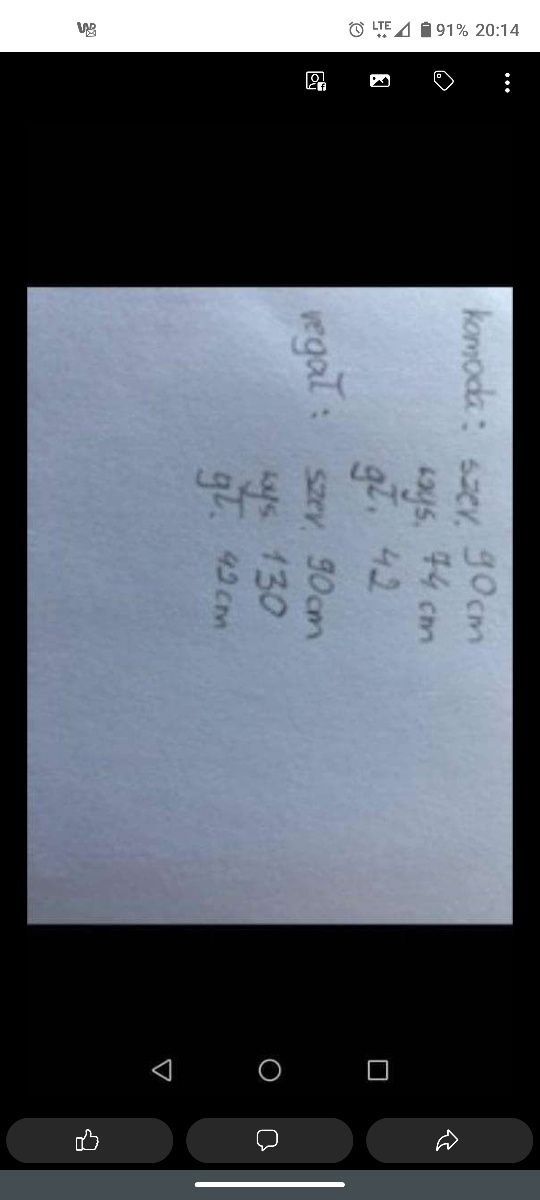 LTE 91% 20:14
komoda: szer. 90cm
wys. 74 cm
gł. 42
regał: szer. 90cm
wys 130
gł. 42 cm